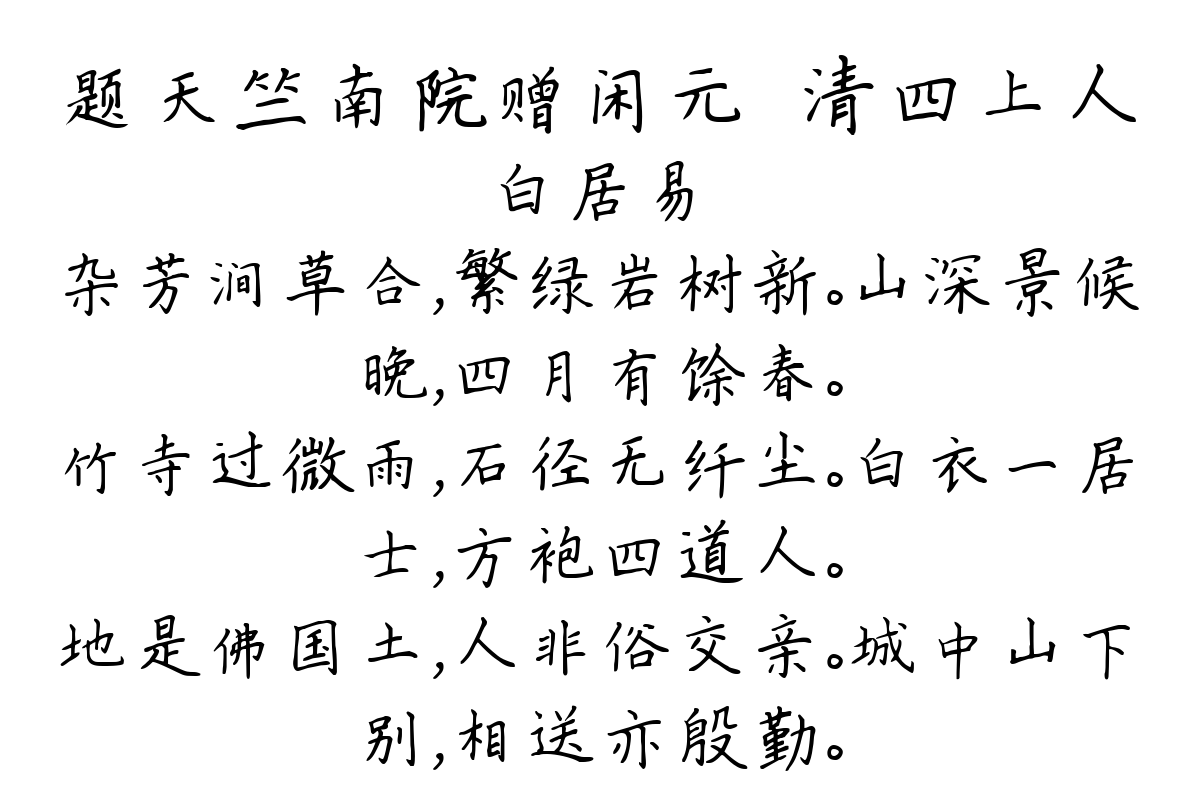 题天竺南院赠闲元 清四上人
白居易
杂芳涧草合,繁绿岩树新。山深景候
晚,四月有馀春。
竹寺过微雨,石径无纤尘。白衣一居
士,方袍四道人。
地是佛国土,人非俗交亲。城中山下
别,相送亦殷勤。